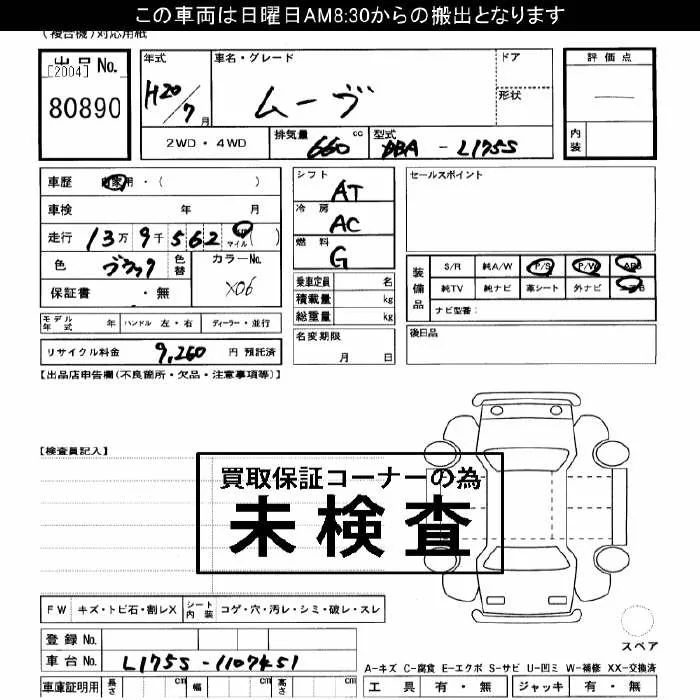 この車両は日曜日AM8:30からの搬出となります
(複合機)対応用紙
出品No.
[2004]
80890
年式
H20/7月
車名・グレード
ムーヴ
ドア
形状
評価点
内装
2WD・4WD
排気量 660 cc
型式 DBA - L175S
車歴 自家用・( )
車検 年 月
走行 13万9千562 km マイル ( )
色 ブラック 色替
カラーNo.
X06
保証書・無
シフト AT
冷房 AC
燃料 G
セールスポイント
乗車定員 名
積載量 kg
総重量 kg
装備品
S/R 純A/W P/S P/W ABS
純TV 純ナビ 革シート 外ナビ エアB
ナビ型番:
モデル年式 年 ハンドル 左・右 ディーラー・並行
リサイクル料金 9,260 円 預託済
名変期限
月 日
後日品
【出品店申告欄(不良箇所・欠品・注意事項等)】
【検査員記入】
買取保証コーナーの為
未検査
FW キズ・トビ石・割レX シート内装 コゲ・穴・汚レ・シミ・破レ・スレ
登録No.
車台No. L175S-1107451
スペア
A-キズ C-腐食 E-エクボ S-サビ U-凹ミ W-補修 XX-交換済
車庫証明用 長さ cm 幅 cm 高さ cm
工具 有・無 ジャッキ 有・無